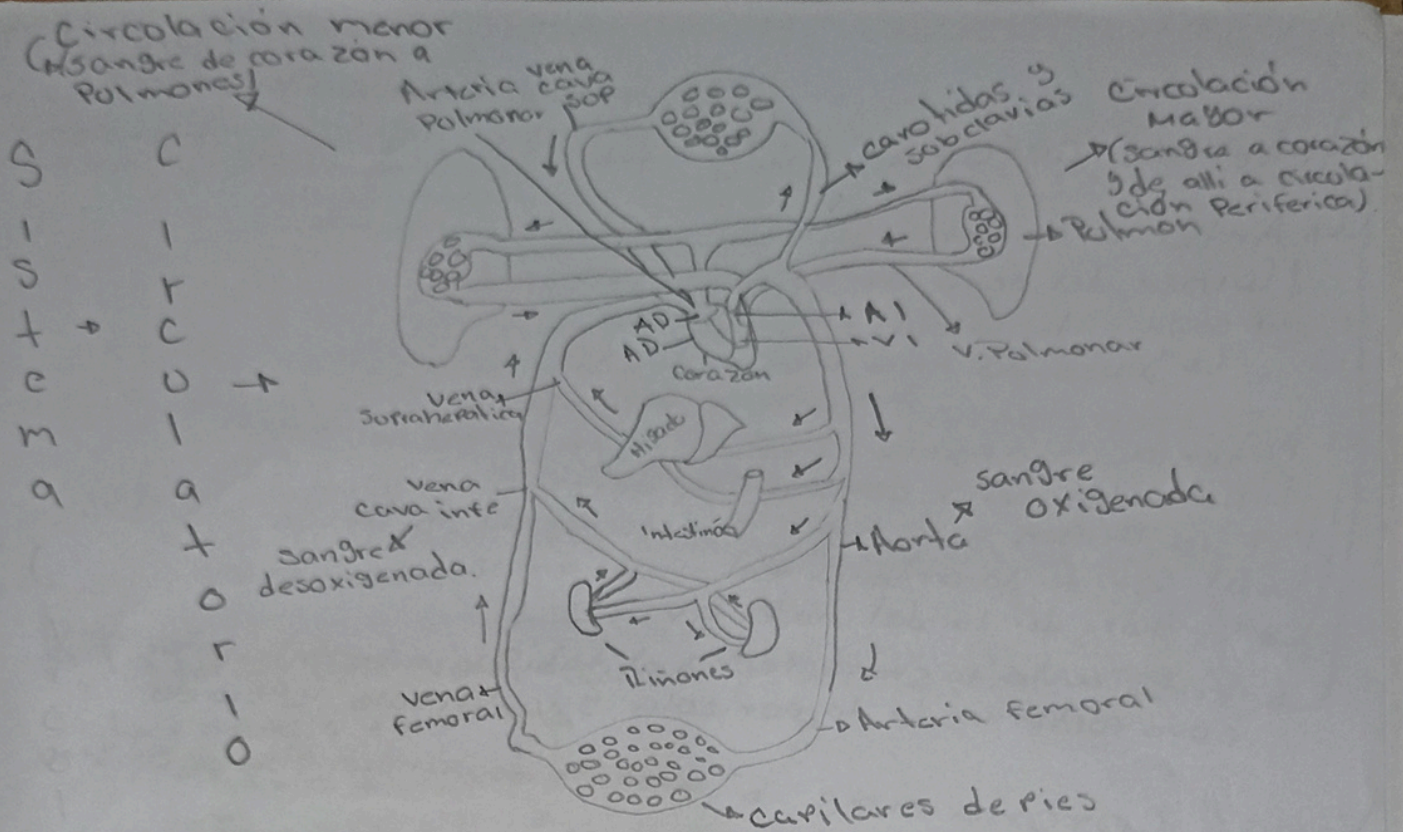 Circolación menor
(sangre de corazón a
Pulmones)
Sistema
Circulatorio
Arteria
Pulmonar
vena
cava
sop
carotidas y
subclavias
Circulación
Mayor
(sangre a corazón
y de alli a circula-
ción Periferica)
Pulmón
AD
AD
Corazón
AI
VI
V. Pulmonar
vena
suprahepatica
Higado
vena
cava infe
Intestinos
sangre
oxigenada
Aorta
sangre
desoxigenada.
Riñones
vena
femoral
Arteria femoral
capilares de pies